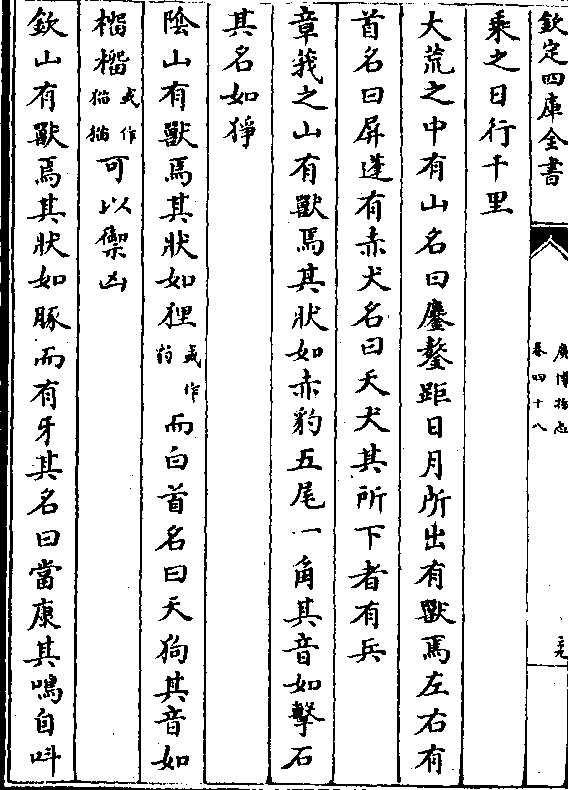 欽定四庫全書
廣博物志
卷四十八
乘之日行千里
大荒之中有山名曰鏖鏊距日月所出有獸焉左右有
首名曰屏蓬有赤犬名曰天犬其所下者有兵
章莪之山有獸焉其狀如赤豹五尾一角其音如擊石
其名如猙
陰山有獸焉其狀如狸或作豹而白首名曰天狗其音如
榴榴或作猫猫可以禦凶
欽山有獸焉其狀如豚而有牙其名曰當康其鳴自叫